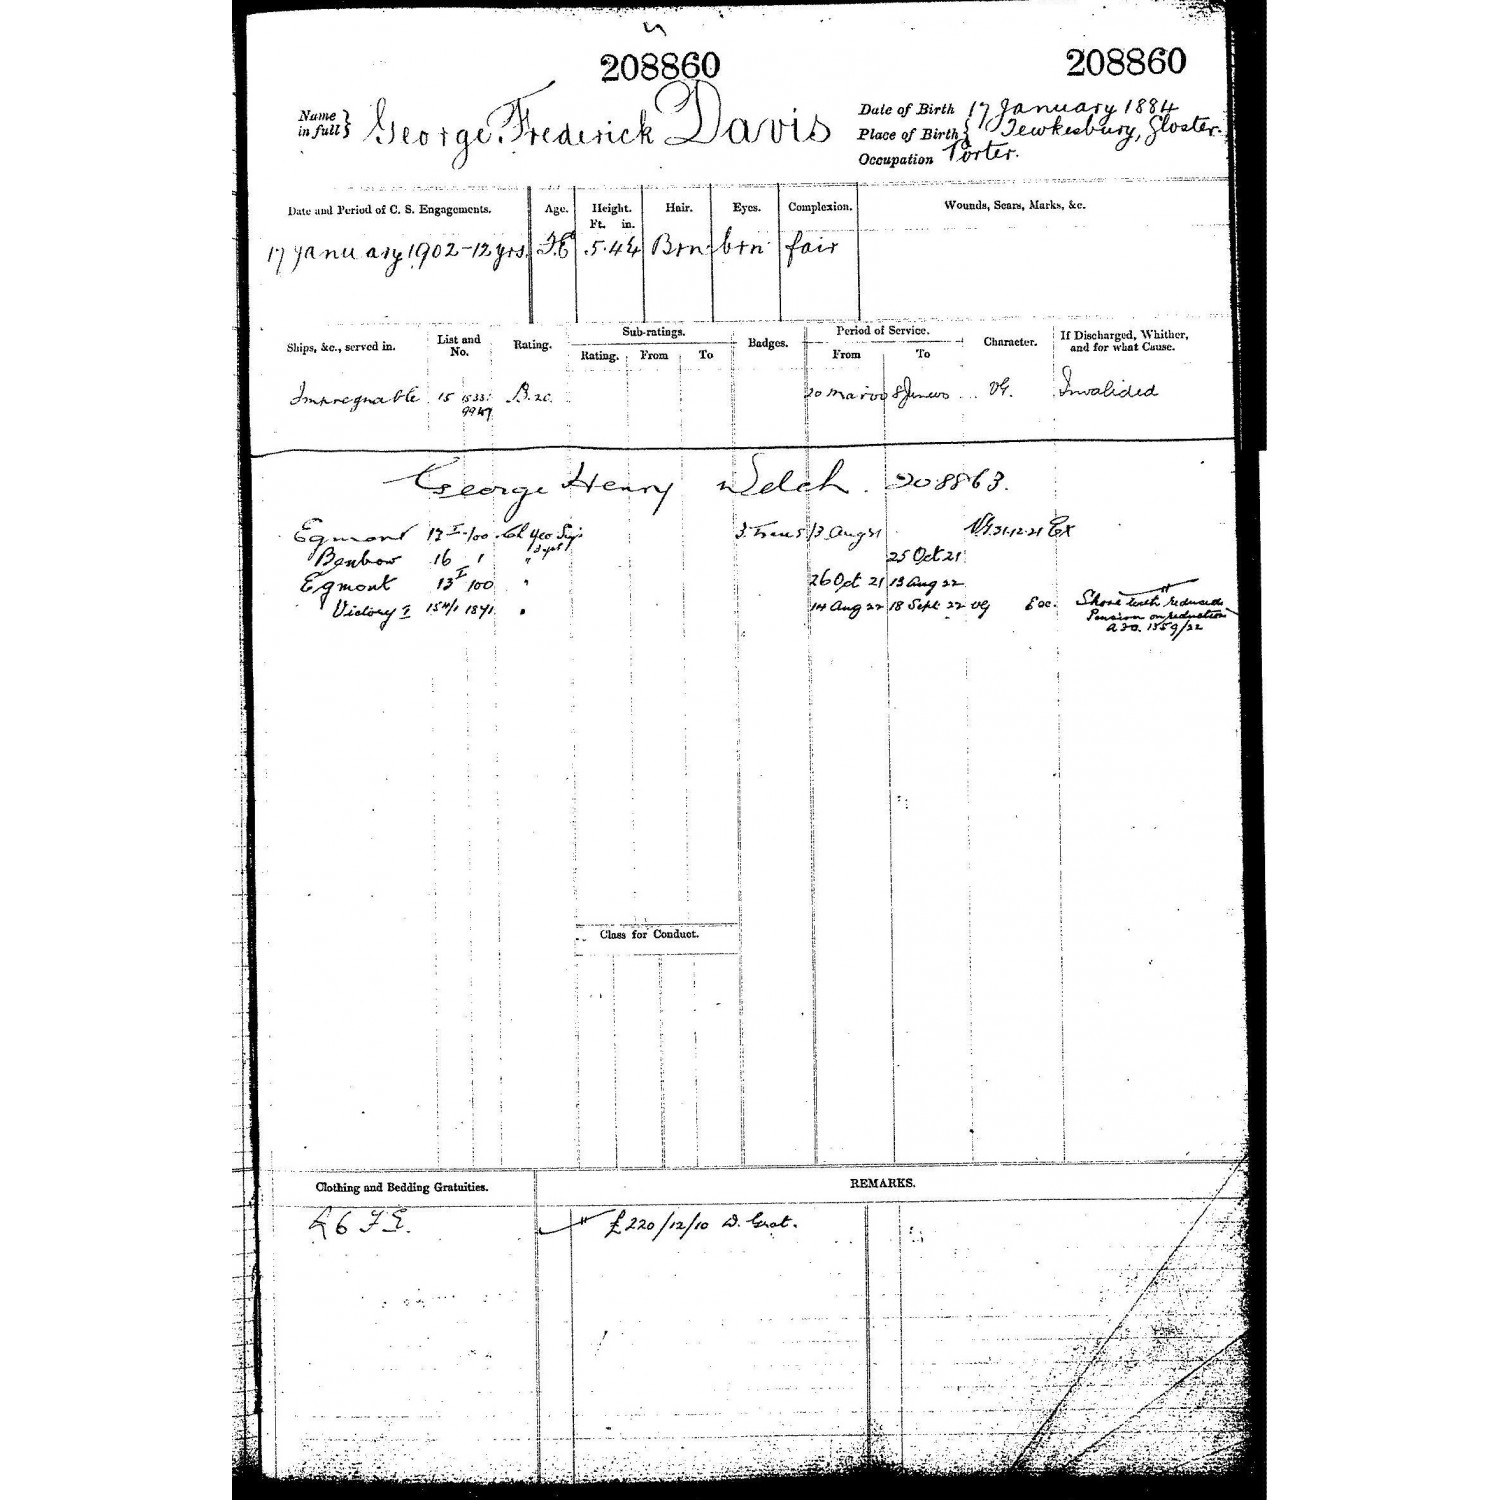 208860 208860
Name in full} George Frederick Davis
Date of Birth 17 January 1884
Place of Birth} Tewkesbury, Gloster.
Occupation Porter.
Date and Period of C. S. Engagements. Age. Height. Ft. in. Hair. Eyes. Complexion. Wounds, Scars, Marks, &c.
17 January 1902-12 yrs. 5.4 Brn brn fair
Ships, &c., served in. List and No. Rating. Sub-ratings. Rating. From To Badges. Period of Service. From To Character. If Discharged, Whither, and for what Cause.
Impregnable 15 B.2c. 20 Mar 00 8 June 00 VG. Invalided
George Henry Welch. 208863.
Egmont 13 I 100 Yeo Sigs 13 Aug 21 VG 31-12-21 Ex
Benbow 16 1 " 25 Oct 21
Egmont 13 I 100 " 26 Oct 21 13 Aug 22
Victory I 15A/1 1841 " 14 Aug 22 18 Sept 22 VG Exc. Shore with reduced
Pension on reduction
AFO. 1559/22
Class for Conduct.
Clothing and Bedding Gratuities. REMARKS.
£6 F.E. £220/12/10 D. Grat.